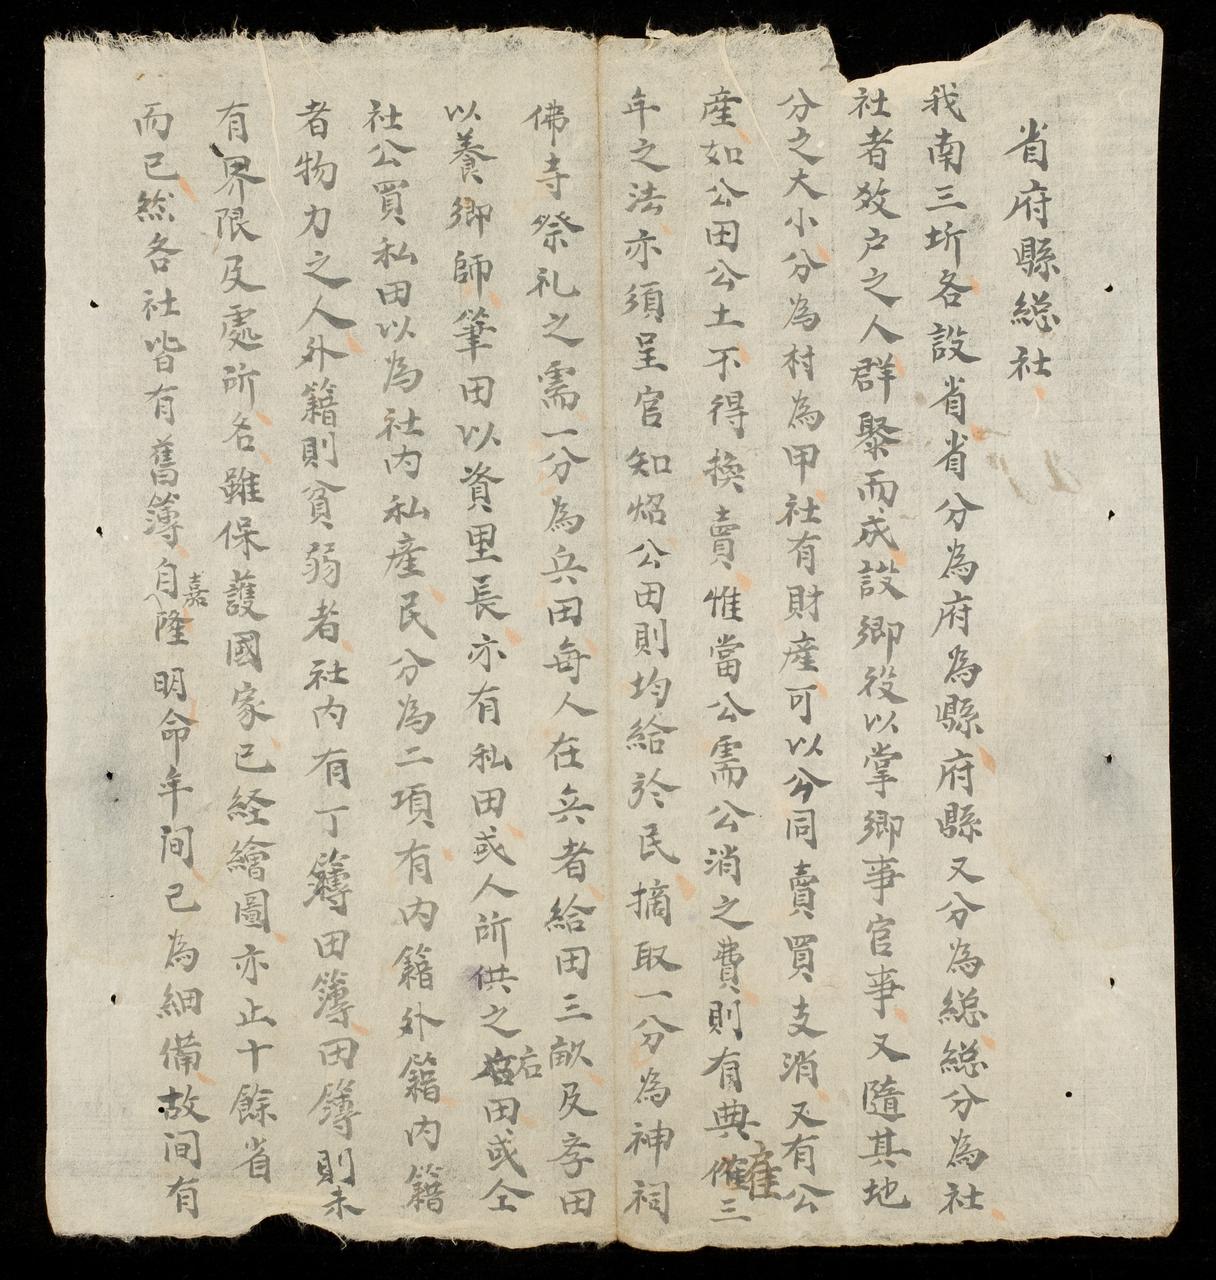 省府縣総社
我南三圻各設省省分為府為縣府縣又分為総総分為社
社者效户之人群聚而成設鄉役以掌鄉事官事又隨其地
分之大小分為村為甲社有財産可以公同賣買支消又有公
産如公田公土不得換賣惟當公需公消之費則有典雇三
年之法亦須呈官知炤公田則均給於民摘取一分為神祠
佛寺祭礼之需一分為兵田每人在兵者給田三畝及孝田
以養鄉師筆田以資里長亦有私田或人所供之右田或仝
社公買私田以為社内私産民分為二項有内籍外籍内籍
者物力之人外籍則貧弱者社内有丁簿田簿田簿則未
有界限及處所名雖保護國家已経繪圖亦止十餘省
而已然各社皆有舊簿自嘉隆明命年间已為細備故间有